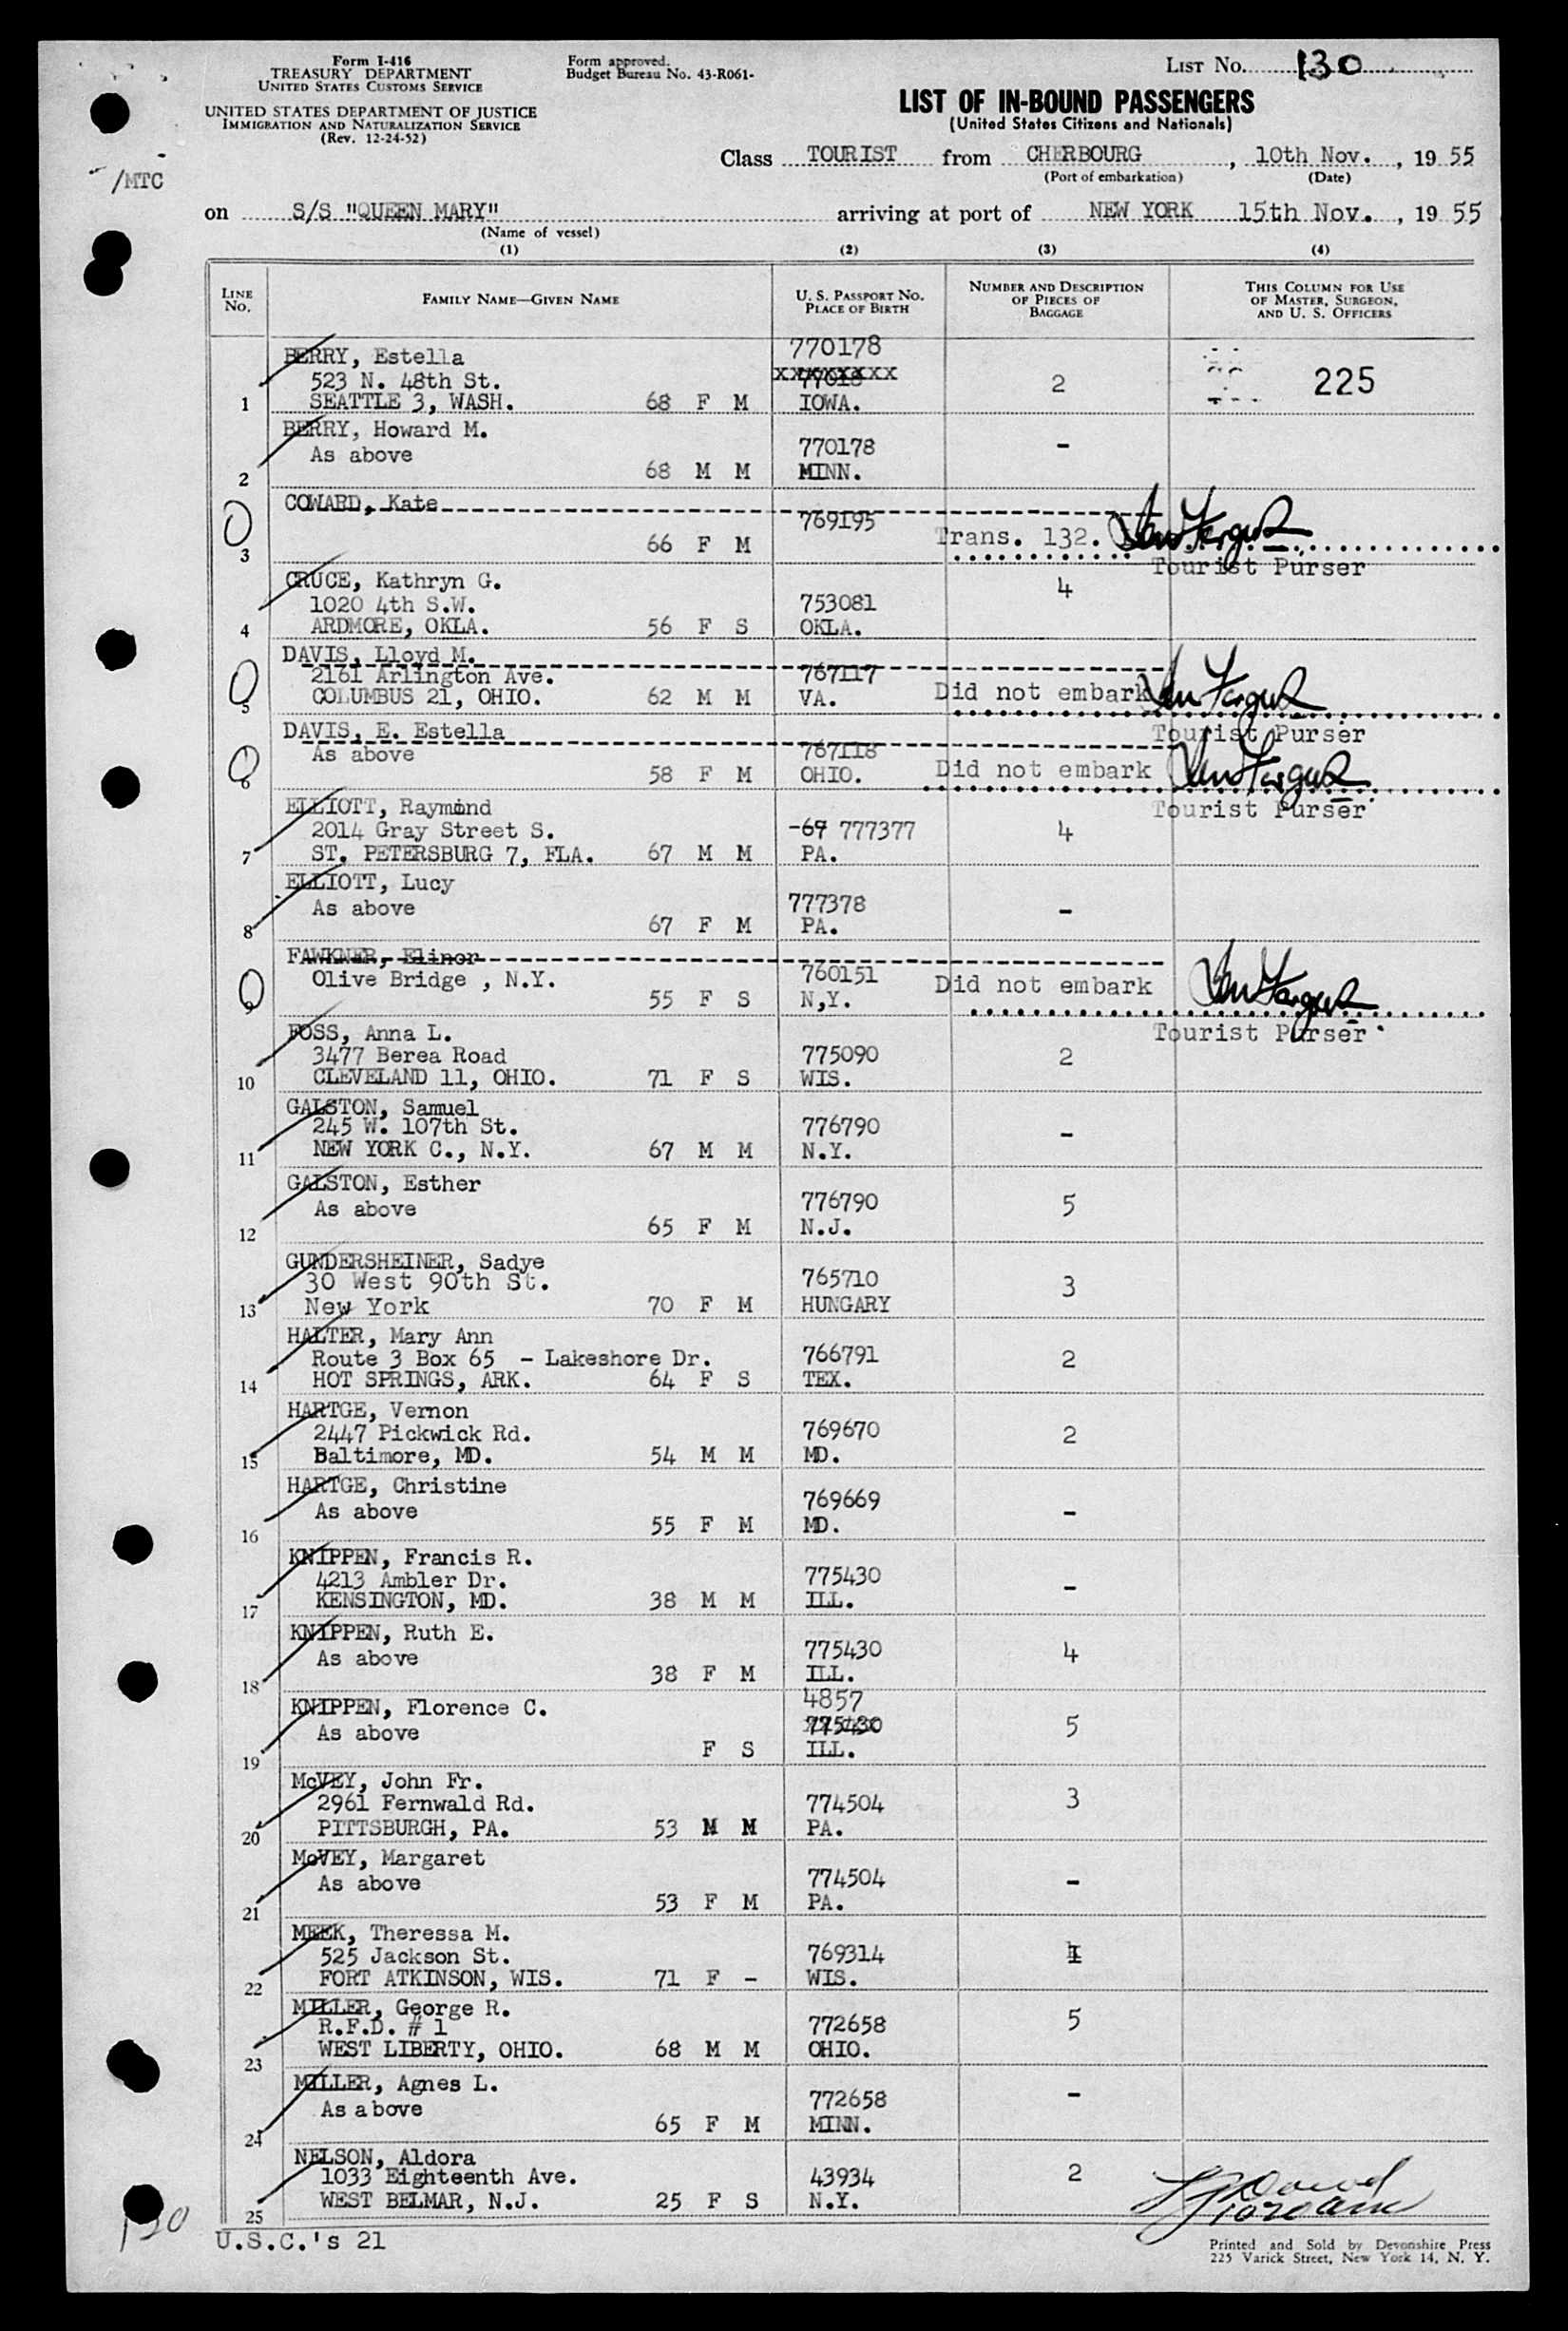 Form I-416
TREASURY DEPARTMENT
UNITED STATES CUSTOMS SERVICE
UNITED STATES DEPARTMENT OF JUSTICE
IMMIGRATION AND NATURALIZATION SERVICE
(Rev. 12-24-52)
Form approved.
Budget Bureau No. 43-R061-
LIST NO. 130
LIST OF IN-BOUND PASSENGERS
(United States Citizens and Nationals)
/MTC
Class TOURIST from CHERBOURG, 10th Nov., 19 55
(Port of embarkation) (Date)
on S/S "QUEEN MARY" arriving at port of NEW YORK 15th Nov., 19 55
(Name of vessel)
(1) (2) (3) (4)
LINE NO. FAMILY NAME—GIVEN NAME U. S. PASSPORT NO. PLACE OF BIRTH NUMBER AND DESCRIPTION OF PIECES OF BAGGAGE THIS COLUMN FOR USE OF MASTER, SURGEON, AND U. S. OFFICERS
BERRY, Estella 770178
523 N. 48th St. XXXXXXXX 77018 2 225
1 SEATTLE 3, WASH. 68 F M IOWA.
BERRY, Howard M. 770178 -
As above
2 68 M M MINN.
COWARD, Kate 769195
3 66 F M Trans. 132.
Tourist Purser
CRUCE, Kathryn G. 4
1020 4th S.W. 753081
4 ARDMORE, OKLA. 56 F S OKLA.
DAVIS, Lloyd M.
2161 Arlington Ave. 767117
5 COLUMBUS 21, OHIO. 62 M M VA. Did not embark
Tourist Purser
DAVIS, E. Estella
As above 767118
6 58 F M OHIO. Did not embark
Tourist Purser
ELLIOTT, Raymond
2014 Gray Street S. -69 777377 4
7 ST. PETERSBURG 7, FLA. 67 M M PA.
ELLIOTT, Lucy
As above 777378 -
8 67 F M PA.
FAWKNER, Elinor
Olive Bridge , N.Y. 760151 Did not embark
9 55 F S N,Y.
Tourist Purser
FOSS, Anna L.
3477 Berea Road 775090 2
10 CLEVELAND 11, OHIO. 71 F S WIS.
GALSTON, Samuel
245 W. 107th St. 776790 -
11 NEW YORK C., N.Y. 67 M M N.Y.
GALSTON, Esther
As above 776790 5
12 65 F M N.J.
GUNDERSHEINER, Sadye
30 West 90th St. 765710 3
13 New York 70 F M HUNGARY
HALTER, Mary Ann
Route 3 Box 65 - Lakeshore Dr. 766791 2
14 HOT SPRINGS, ARK. 64 F S TEX.
HARTGE, Vernon
2447 Pickwick Rd. 769670 2
15 Baltimore, MD. 54 M M MD.
HARTGE, Christine
As above 769669 -
16 55 F M MD.
KNIPPEN, Francis R.
4213 Ambler Dr. 775430 -
17 KENSINGTON, MD. 38 M M ILL.
KNIPPEN, Ruth E.
As above 775430 4
18 38 F M ILL.
KNIPPEN, Florence C. 4857
As above 775430 5
19 F S ILL.
McVEY, John Fr.
2961 Fernwald Rd. 774504 3
20 PITTSBURGH, PA. 53 M M PA.
McVEY, Margaret
As above 774504 -
21 53 F M PA.
MEEK, Theressa M.
525 Jackson St. 769314 1
22 FORT ATKINSON, WIS. 71 F - WIS.
MILLER, George R.
R.F.D. # 1 772658 5
23 WEST LIBERTY, OHIO. 68 M M OHIO.
MILLER, Agnes L.
As above 772658 -
24 65 F M MINN.
NELSON, Aldora
1033 Eighteenth Ave. 43934 2
25 WEST BELMAR, N.J. 25 F S N.Y.
130
U.S.C.'s 21
Printed and Sold by Devonshire Press
225 Varick Street, New York 14, N. Y.